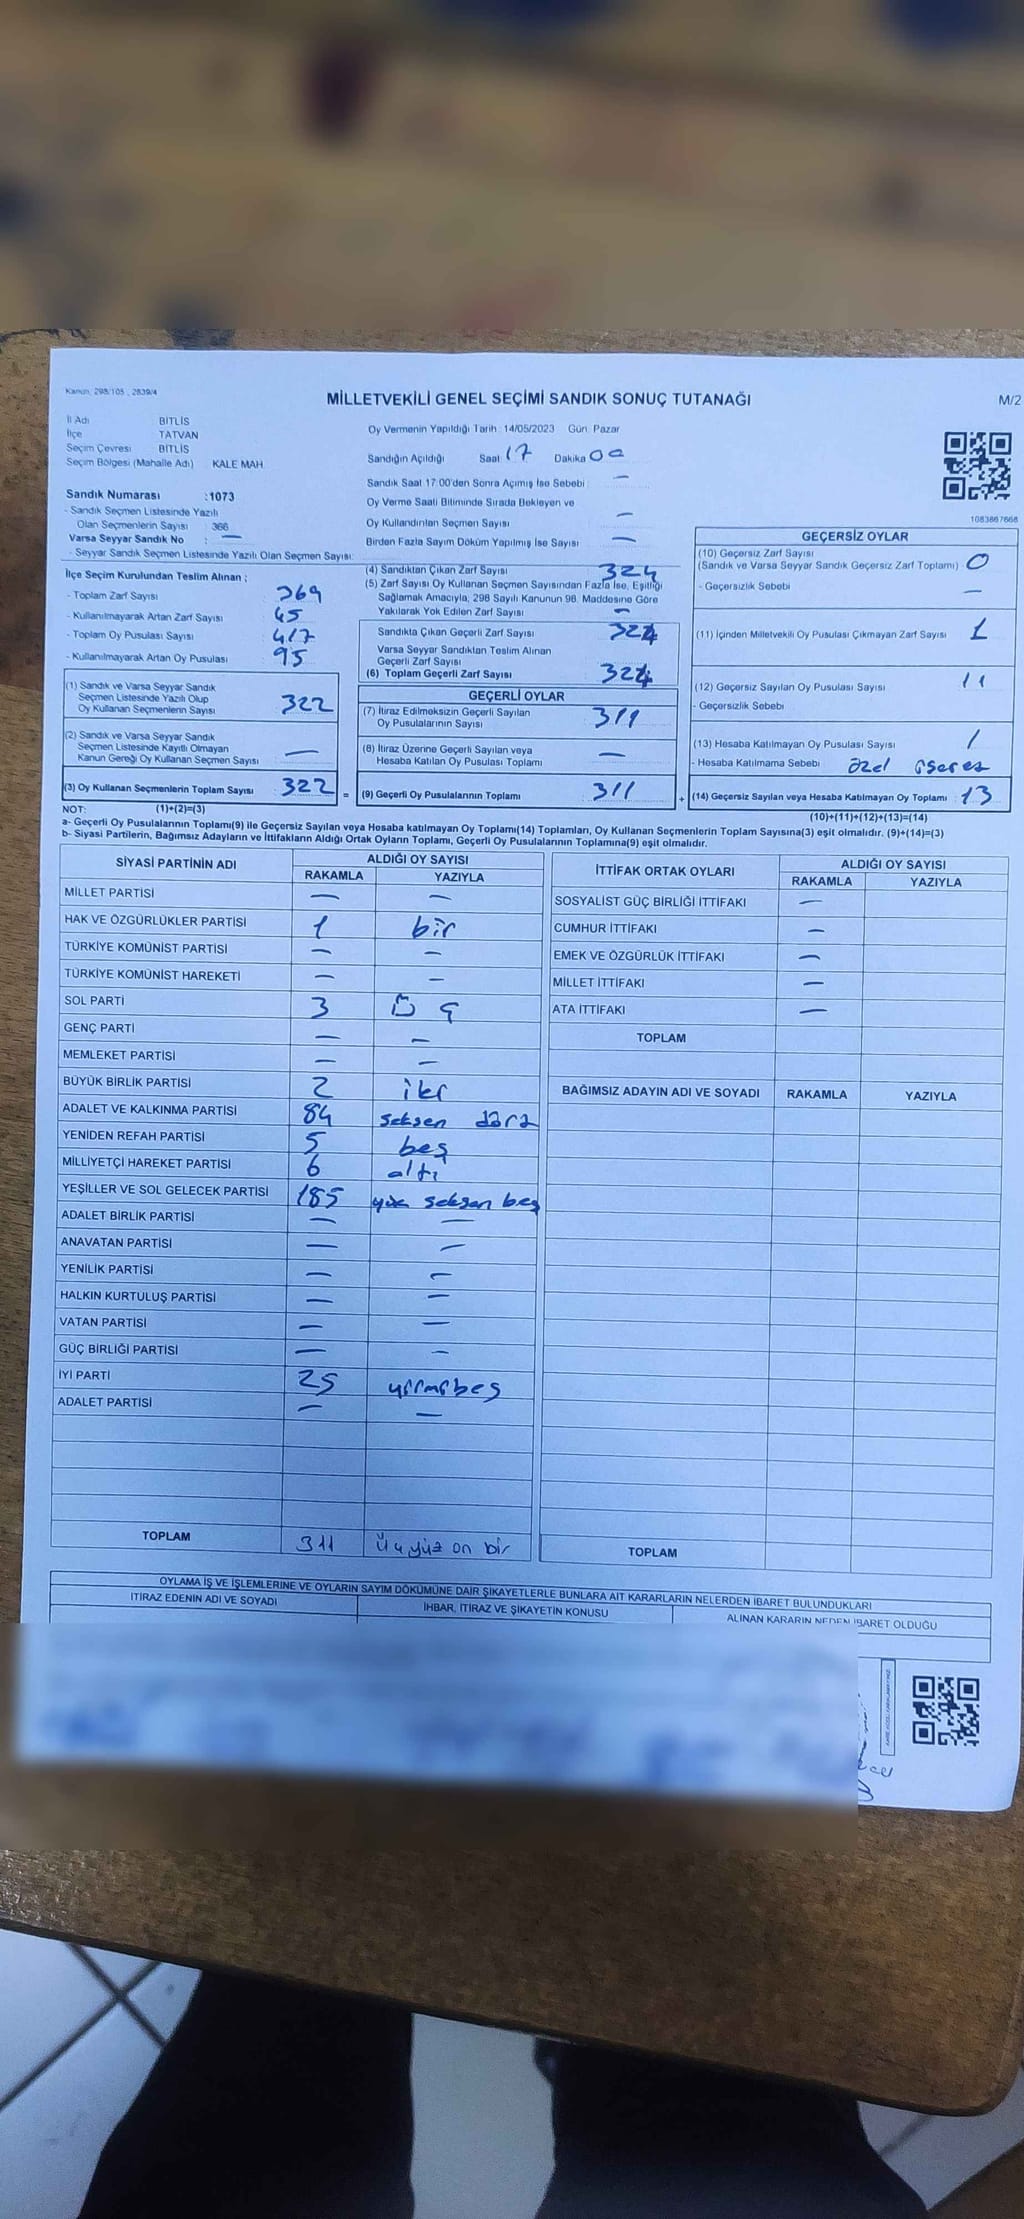 Kanun: 298/105 , 2839/4
MİLLETVEKİLİ GENEL SEÇİMİ SANDIK SONUÇ TUTANAĞI
M/2
İl Adı BİTLİS
İlçe TATVAN
Seçim Çevresi BİTLİS
Seçim Bölgesi (Mahalle Adı) KALE MAH.
Sandık Numarası :1073
- Sandık Seçmen Listesinde Yazılı
Olan Seçmenlerin Sayısı : 366
Varsa Seyyar Sandık No : —
- Seyyar Sandık Seçmen Listesinde Yazılı Olan Seçmen Sayısı:
Oy Vermenin Yapıldığı Tarih : 14/05/2023 Gün: Pazar
Sandığın Açıldığı Saat 17 Dakika 00
Sandık Saat 17:00'den Sonra Açımış İse Sebebi : —
Oy Verme Saati Bitiminde Sırada Bekleyen ve
Oy Kullandırılan Seçmen Sayısı —
Birden Fazla Sayım Döküm Yapılmış İse Sayısı —
1083667668
İlçe Seçim Kurulundan Teslim Alınan ;
- Toplam Zarf Sayısı : 369
- Kullanılmayarak Artan Zarf Sayısı : 45
- Toplam Oy Pusulası Sayısı : 417
- Kullanılmayarak Artan Oy Pusulası : 95
(1) Sandık ve Varsa Seyyar Sandık
Seçmen Listesinde Yazılı Olup
Oy Kullanan Seçmenlerin Sayısı 322
(2) Sandık ve Varsa Seyyar Sandık
Seçmen Listesinde Kayıtlı Olmayan
Kanun Gereği Oy Kullanan Seçmen Sayısı —
(3) Oy Kullanan Seçmenlerin Toplam Sayısı 322 =
(4) Sandıktan Çıkan Zarf Sayısı 324
(5) Zarf Sayısı Oy Kullanan Seçmen Sayısından Fazla İse, Eşitliği
Sağlamak Amacıyla, 298 Sayılı Kanunun 98. Maddesine Göre
Yakılarak Yok Edilen Zarf Sayısı —
Sandıkta Çıkan Geçerli Zarf Sayısı 324
Varsa Seyyar Sandıktan Teslim Alınan
Geçerli Zarf Sayısı
(6) Toplam Geçerli Zarf Sayısı 324
GEÇERLİ OYLAR
(7) İtiraz Edilmeksizin Geçerli Sayılan
Oy Pusulalarının Sayısı 311
(8) İtiraz Üzerine Geçerli Sayılan veya
Hesaba Katılan Oy Pusulası Toplamı —
(9) Geçerli Oy Pusulalarının Toplamı 311 +
GEÇERSİZ OYLAR
(10) Geçersiz Zarf Sayısı
(Sandık ve Varsa Seyyar Sandık Geçersiz Zarf Toplamı) 0
- Geçersizlik Sebebi —
(11) İçinden Milletvekili Oy Pusulası Çıkmayan Zarf Sayısı 1
(12) Geçersiz Sayılan Oy Pusulası Sayısı 11
- Geçersizlik Sebebi
(13) Hesaba Katılmayan Oy Pusulası Sayısı 1
- Hesaba Katılmama Sebebi özel
(14) Geçersiz Sayılan veya Hesaba Katılmayan Oy Toplamı 13
NOT: (1)+(2)=(3)
(10)+(11)+(12)+(13)=(14)
a- Geçerli Oy Pusulalarının Toplamı(9) ile Geçersiz Sayılan veya Hesaba katılmayan Oy Toplamı(14) Toplamları, Oy Kullanan Seçmenlerin Toplam Sayısına(3) eşit olmalıdır. (9)+(14)=(3)
b- Siyasi Partilerin, Bağımsız Adayların ve İttifakların Aldığı Ortak Oyların Toplamı, Geçerli Oy Pusulalarının Toplamına(9) eşit olmalıdır.
SİYASİ PARTİNİN ADI ALDIĞI OY SAYISI
RAKAMLA YAZIYLA
MİLLET PARTİSİ — —
HAK VE ÖZGÜRLÜKLER PARTİSİ 1 bir
TÜRKİYE KOMÜNİST PARTİSİ — —
TÜRKİYE KOMÜNİST HAREKETİ — —
SOL PARTİ 3 Üç
GENÇ PARTİ — —
MEMLEKET PARTİSİ — —
BÜYÜK BİRLİK PARTİSİ 2 iki
ADALET VE KALKINMA PARTİSİ 84 seksen dört
YENİDEN REFAH PARTİSİ 5 beş
MİLLİYETÇİ HAREKET PARTİSİ 6 altı
YEŞİLLER VE SOL GELECEK PARTİSİ 185 yüz seksen beş
ADALET BİRLİK PARTİSİ — —
ANAVATAN PARTİSİ — —
YENİLİK PARTİSİ — —
HALKIN KURTULUŞ PARTİSİ — —
VATAN PARTİSİ — —
GÜÇ BİRLİĞİ PARTİSİ — —
İYİ PARTİ 25 yirmibeş
ADALET PARTİSİ — —
TOPLAM 311 Üçyüz on bir
İTTİFAK ORTAK OYLARI ALDIĞI OY SAYISI
RAKAMLA YAZIYLA
SOSYALİST GÜÇ BİRLİĞİ İTTİFAKI —
CUMHUR İTTİFAKI —
EMEK VE ÖZGÜRLÜK İTTİFAKI —
MİLLET İTTİFAKI —
ATA İTTİFAKI —
TOPLAM
BAĞIMSIZ ADAYIN ADI VE SOYADI RAKAMLA YAZIYLA
TOPLAM
OYLAMA İŞ VE İŞLEMLERINE VE OYLARIN SAYIM DÖKÜMÜNE DAİR ŞİKAYETLERLE BUNLARA AİT KARARLARIN NELERDEN İBARET BULUNDUKLARI
İTİRAZ EDENİN ADI VE SOYADI İHBAR, İTİRAZ VE ŞİKAYETİN KONUSU ALINAN KARARIN NEDEN İBARET OLDUĞU